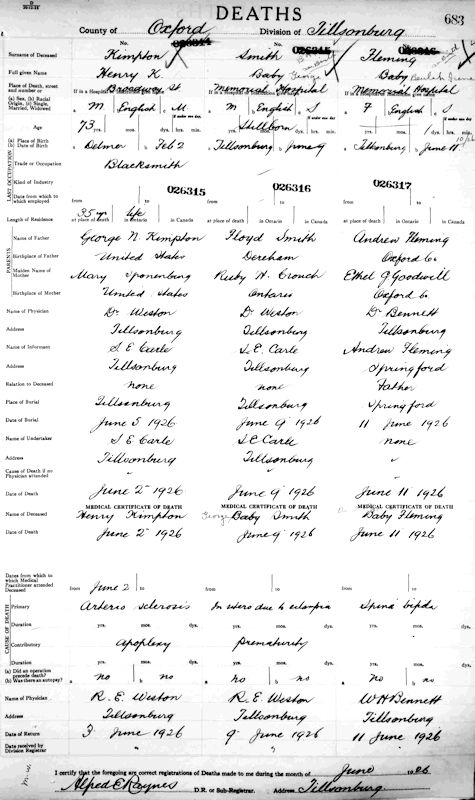 DEATHS
683
County of Oxford Division of Tillsonburg
No. 026314 No. 026315 No. 026316
Surname of Deceased Kimpton Smith Fleming
Full given Name Henry K. Baby George Baby Beulah
Place of Death, street and number Broadway St Memorial Hospital Memorial Hospital
(a) Sex. (b) Racial Origin. (c) Single, Married, Widowed M English M. M English S F English S
Age 73 yrs. mos. dys. hrs. min. Stillborn yrs. mos. dys. hrs. min.
(a) Place of Birth (b) Date of Birth a Delmer b Feb 2 a Tillsonburg b June 9 a Tillsonburg b June 11
LAST OCCUPATION
Trade or Occupation Blacksmith
Kind of Industry
026315 026316 026317
Date from which to which employed from to from to from to
35 yr life
Length of Residence at place of death in Ontario in Canada at place of death in Ontario in Canada at place of death in Ontario in Canada
PARENTS
Name of Father George N. Kimpton Floyd Smith Andrew Fleming
Birthplace of Father United States Dereham Oxford Co.
Maiden Name of Mother Mary Sponenburg Ruby H. Crouch Ethel G Goodwill
Birthplace of Mother United States Ontario Oxford Co
Name of Physician Dr Weston Dr Weston Dr Bennett
Address Tillsonburg Tillsonburg Tillsonburg
Name of Informant S E Carle S. E. Carle Andrew Fleming
Address Tillsonburg Tillsonburg Springford
Relation to Deceased none none Father
Place of Burial Tillsonburg Tillsonburg Springford
Date of Burial June 5 1926 June 9 1926 11 June 1926
Name of Undertaker S E Carle S E Carle none
Address Tillsonburg Tillsonburg "
Cause of Death if no Physician attended " "
Date of Death June 2 1926 June 9 1926 June 11 1926
MEDICAL CERTIFICATE OF DEATH MEDICAL CERTIFICATE OF DEATH MEDICAL CERTIFICATE OF DEATH
Name of Deceased Henry Kimpton George Baby Smith Baby Fleming
Date of Death June 2 1926 June 9 1926 June 11 1926
Dates from which to which Medical Practitioner attended Deceased from June 2 to from to from to
CAUSE OF DEATH
Primary Arterio sclerosis In utero due to eclampsia Spina bifida
Duration yrs. mos. dys. yrs. mos. dys. yrs. mos. dys.
Contributory apoplexy Prematurity
Duration yrs. mos. dys. yrs. mos. dys. yrs. mos. dys.
(a) Did an operation precede death? (b) Was there an autopsy? a no b no a no b no a no b no
Name of Physician R. E. Weston R. E. Weston W H Bennett
Address Tillsonburg Tillsonburg Tillsonburg
Date of Return 3 June 1926 9 June 1926 11 June 1926
Date received by Division Registrar " " "
I certify that the foregoing are correct registrations of Deaths made to me during the month of June 1926
Alfred E Raynes D.R. or Sub-Registrar. Address Tillsonburg